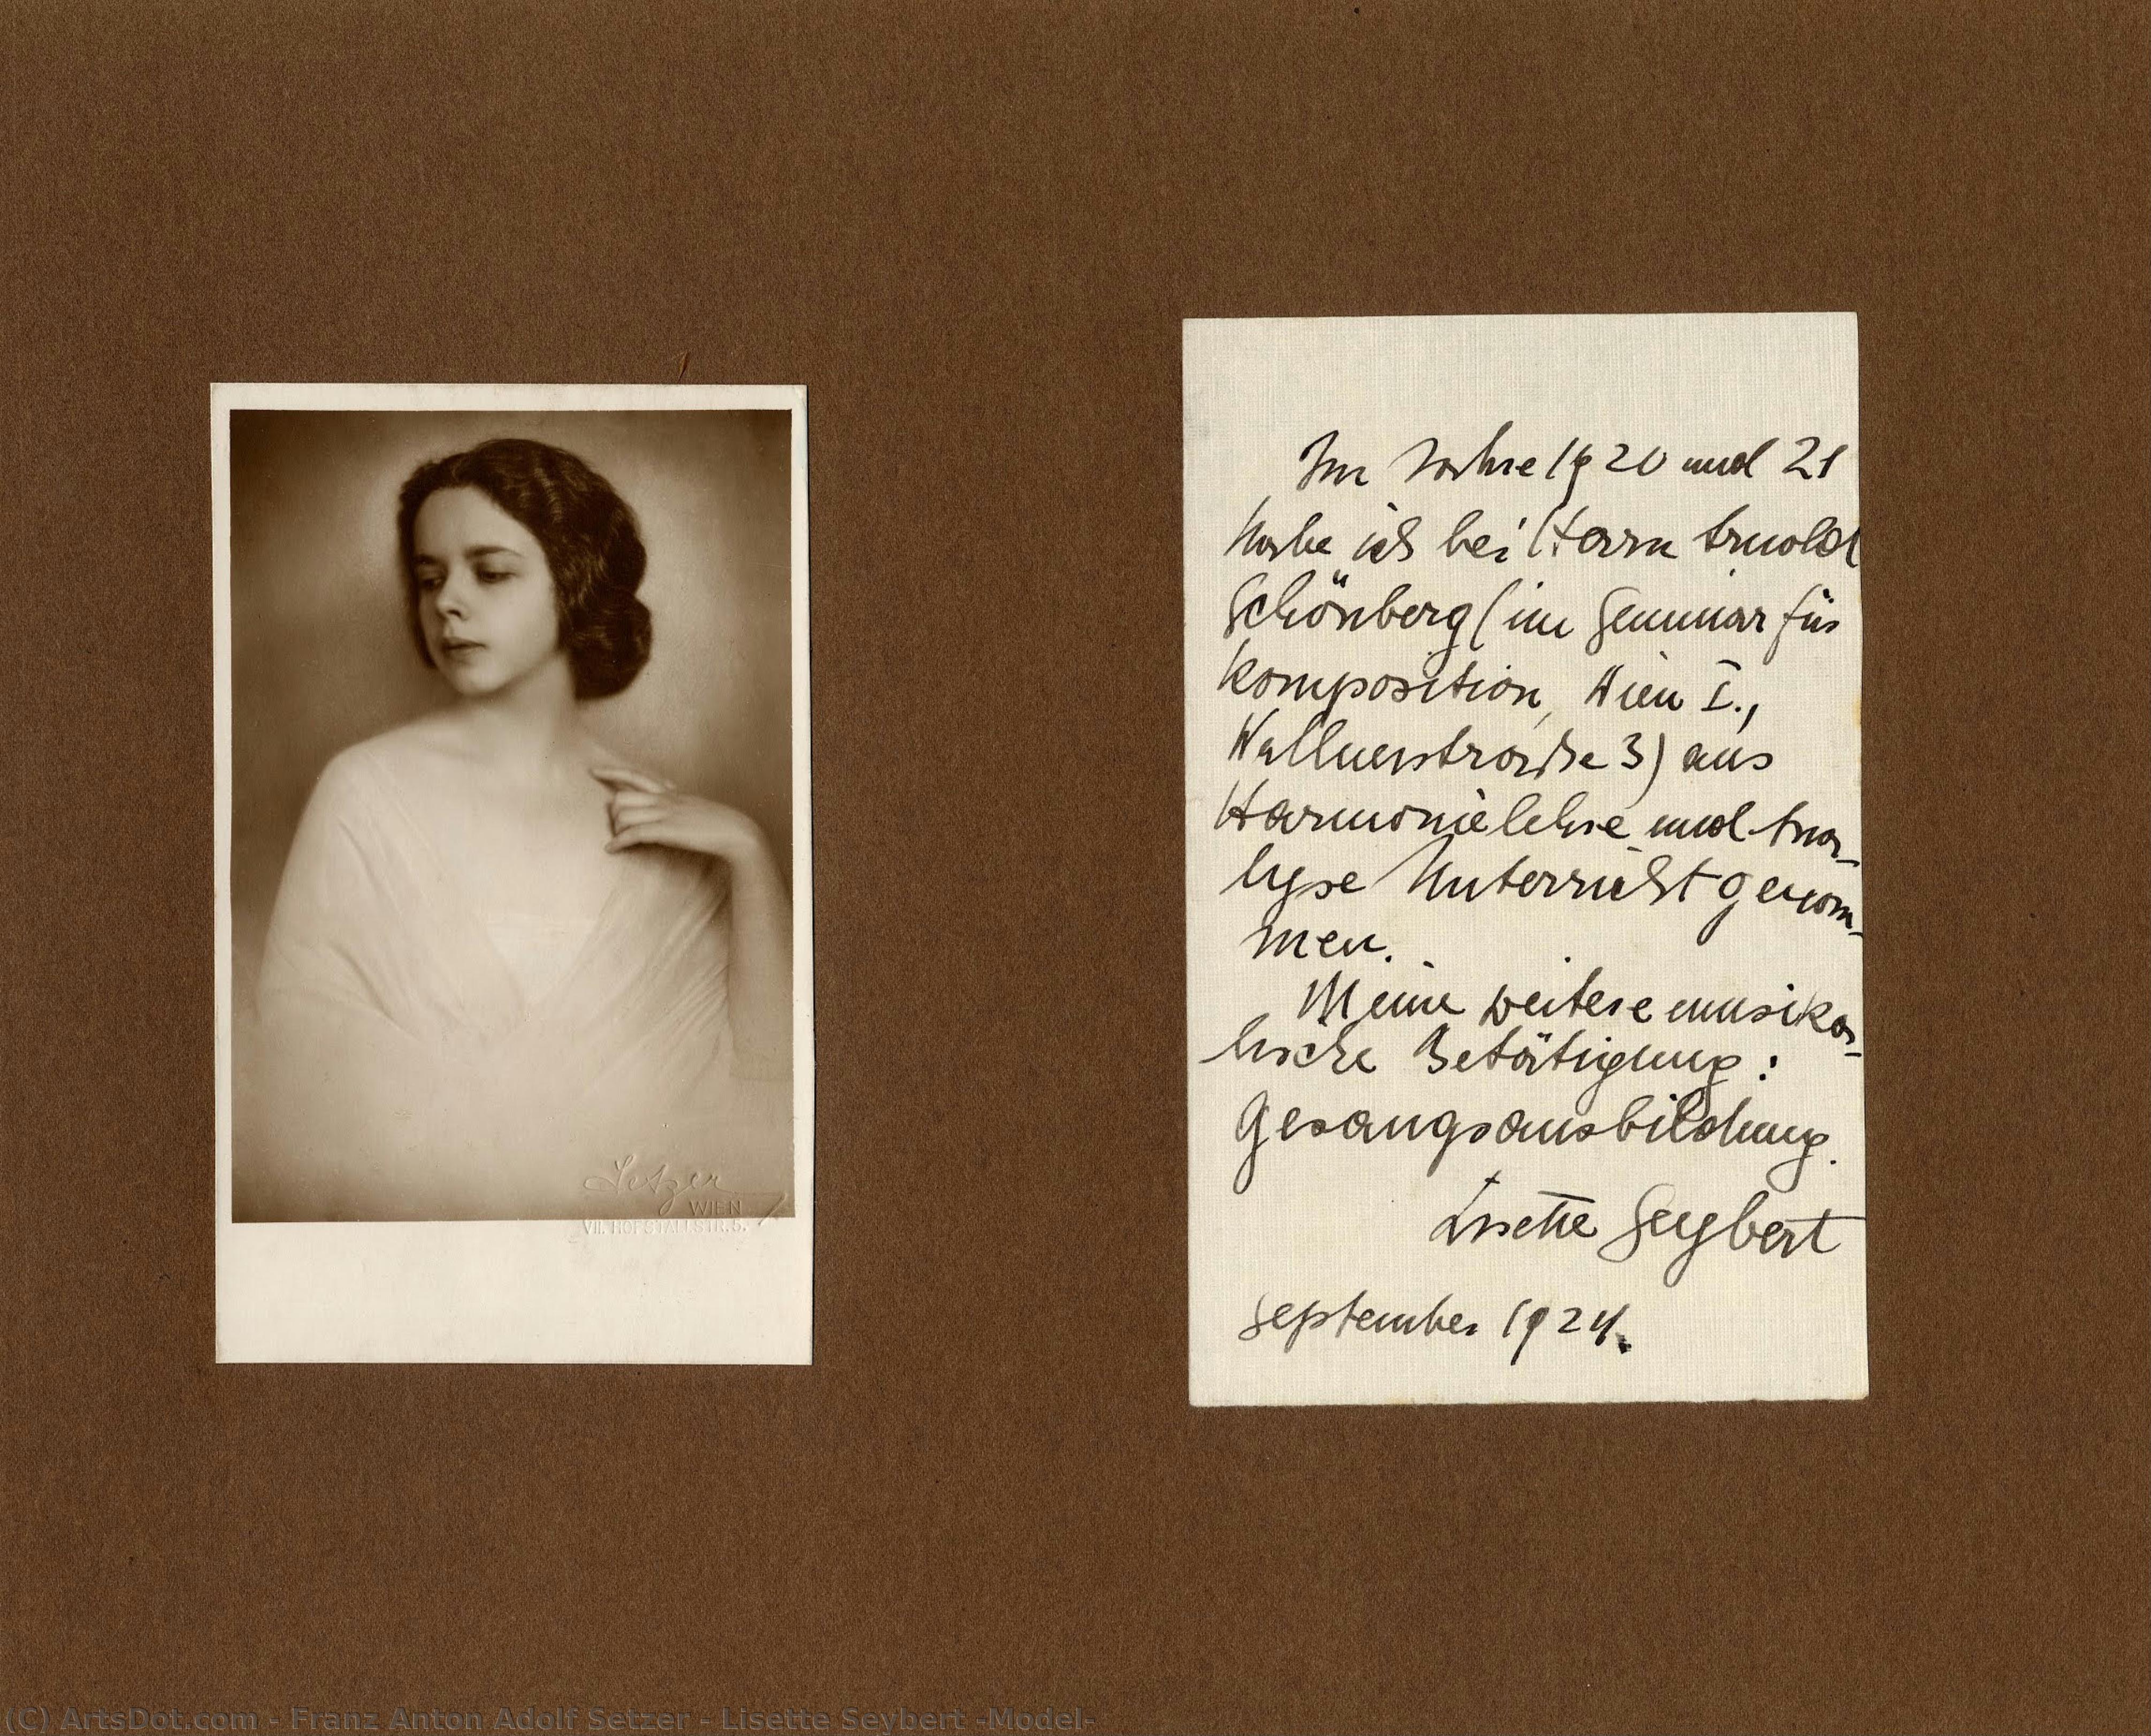 Setzer
WIEN
VII. HOFSTALLSTR. 5.
Im Jahre 1920 und 21
habe ich bei Herrn Arnold
Schönberg (im Seminar für
Komposition, Wien I.,
Wallnerstraße 3) aus
Harmonielehre und Ana-
lyse Unterricht genom-
men.
Meine weitere musika-
lische Betätigung:
Gesangsausbildung.
Lisette Seybert
September 1924.
(C) ArtsDot.com - Franz Anton Adolf Setzer - Lisette Seybert -Model-